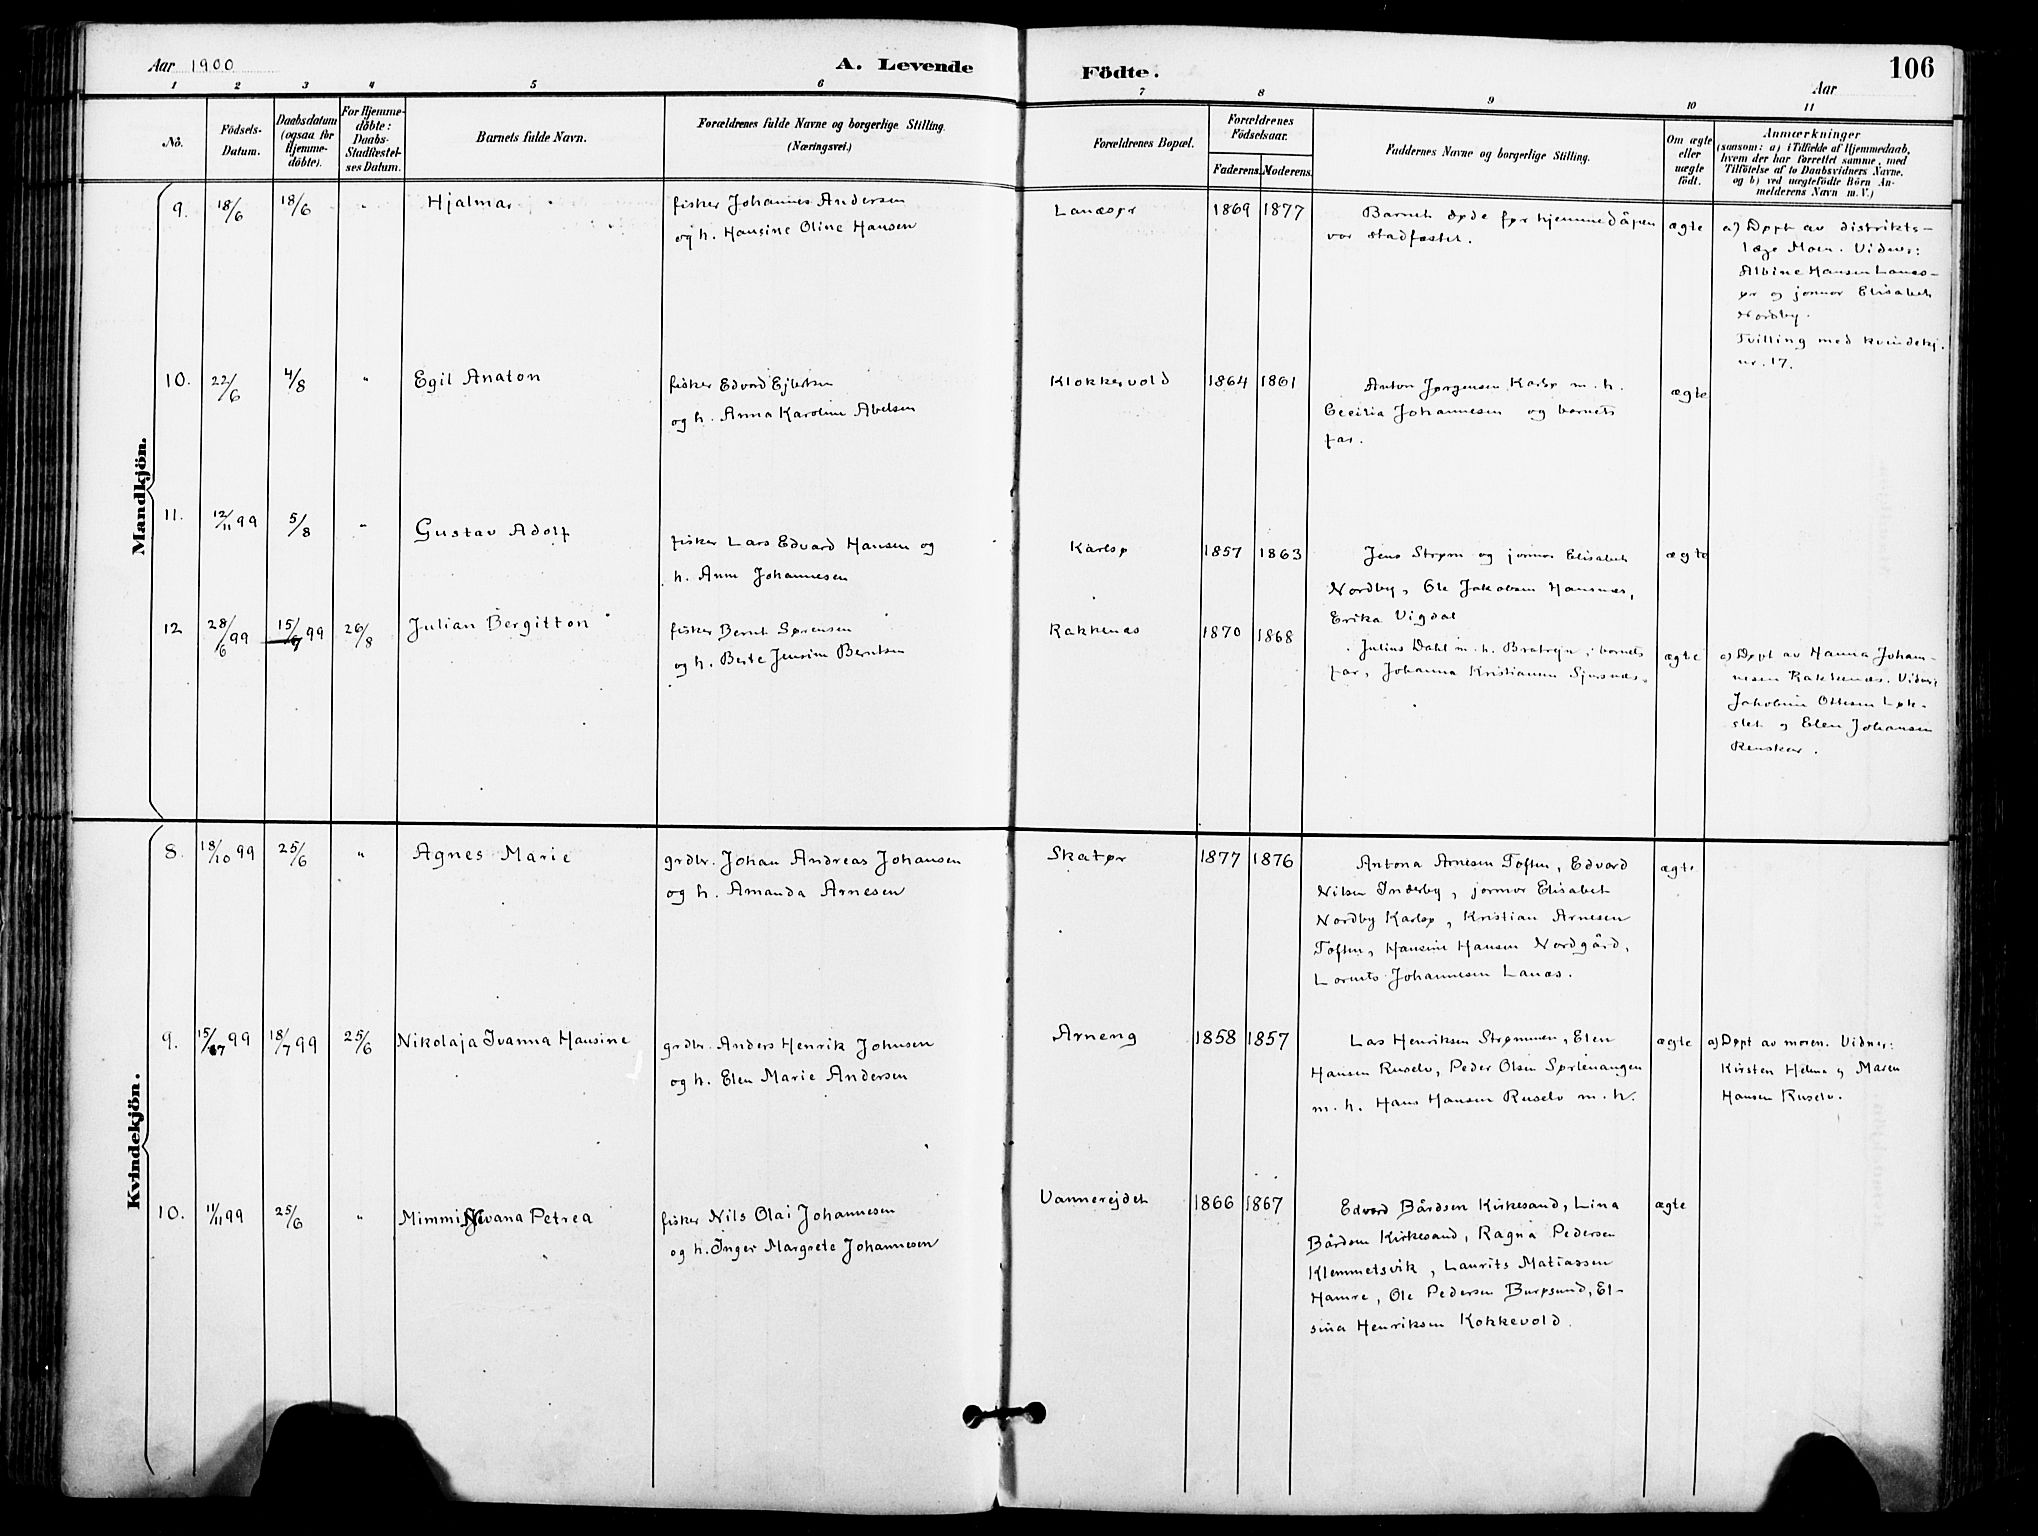 Aar 1900
A. Levende
Födte.
106
Aar
1 2 3 4 5 6 7 8 9 10 11
No.
Födsels-
Datum.
Daabsdatum
(ogsaa for
Hjemme-
döbte).
For Hjemme-
döbte:
Daabs-
Stadfæstel-
ses Datum.
Barnets fulde Navn.
Forældrenes fulde Navne og borgerlige Stilling.
(Næringsvei.)
Forældrenes Bopæl.
Forældrenes
Födselsaar.
Faderens. Moderens.
Faddernes Navne og borgerlige Stilling.
Om ægte
eller
uægte
födt.
Anmærkninger
(saasom: a) i Tilfælde af Hjemmedaab,
hvem der har forrettet samme, med
Tilföielse af to Daabsvidners Navne.
og b) ved uægtefödte Börn An-
melderens Navn m. V.)
Mandkjön.
9. 18/6 18/6 " Hjalmar
fisker Johannes Andersen
og h. Hansine Oline Hansen
Lanesør 1869 1877
Barnet døde før hjemmedåpen
var stadfæstet.
ægte
a) Døpt av distrikts-
læge Moen. Vidner:
Albine Hansen Lanes-
ør og jormor Elisabet
Nordby.
Tvilling med kvindekj.
nr. 17.
10. 22/6 4/8 " Egil Anaton
fisker Edvard Ejlertsen
og h. Anna Karoline Abelsen
Klokkervold 1864 1861
Anton Jørgensen Karlsø m. h.
Cecilia Johannesen og barnets
far.
ægte
11. 12/11 99 5/8 " Gustav Adolf
fisker Lars Edvard Hansen og
h. Anne Johannesen
Karlsø 1857 1863
Jens Strøm og jormor Elisabet
Nordby, Ole Jakobsen Hansnes,
Erika Vigdal
ægte
12 28/6 99 15/7 99 26/8 Julian Bergitton
fisker Bernt Sørensen
og h. Berte Jensine Berntsen
Rakkenæs 1870 1868
Julius Dahl m. h. Bratrejn, barnets
far, Johanna Kristiansen Sjursnæs.
ægte
a) Døpt av Hanna Johan-
nesen Rakkenæs. Vidner:
Jakobine Ottesen Løk-
slet og Elen Johansen
Renskar.
Kvindekjön.
8. 18/10 99 25/6 " Agnes Marie
grdbr. Johan Andreas Johansen
og h. Amanda Arnesen
Skatør 1877 1876
Antona Arnesen Toften, Edvard
Nilsen Inderby, jormor Elisabet
Nordby Karlsø, Kristian Arnesen
Toften, Hansine Hansen Nordgård,
Lornts Johannesen Lanes.
ægte
9. 15/7 99 18/7 99 25/6 Nikolaja Ivanna Hansine
grdbr. Anders Henrik Johnsen
og h. Elen Marie Andersen
Arneng 1858 1857
Lars Henriksen Strømmen, Elen
Hansen Ruselv, Peder Olsen Sørlenangen
m. h. Hans Hansen Ruselv m. h.
ægte
a) Døpt av moren. Vidner:
Kirsten Helma og Maren
Hansen Ruselv.
10. 11/11 99 25/6 " Mimmi Jovana Petrea
fisker Nils Olai Johannesen
og h. Inger Margrete Johannesen
Vannerejdet 1866 1867
Edvard Bårdsen Kirkesand, Lina
Bårdsen Kirkesand, Ragna Pedersen
Klemmetsvik, Laurits Matiassen
Hamre, Ole Pedersen Burøsund, El-
sina Henriksen Kokkevold.
ægte